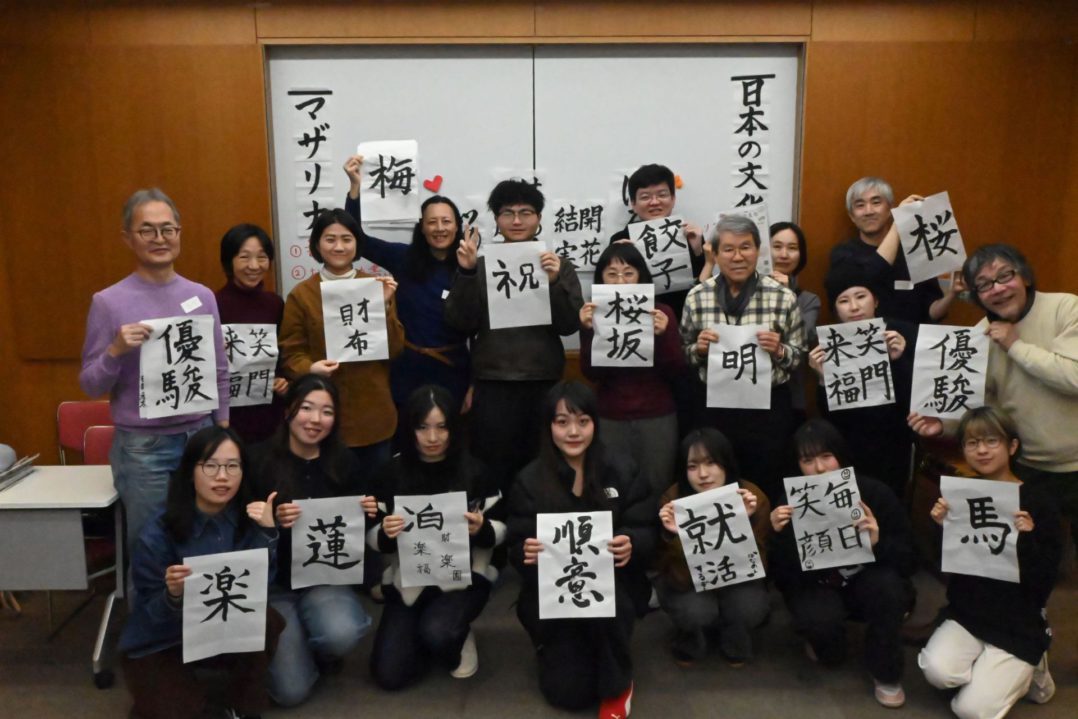 マザリナ
日本の文化
梅
開花
結実
祝
餃子
桜
財布
桜坂
明
笑門
来福
笑門
来福
優駿
優駿
楽
蓮
泊
財
楽
楽
園
福
順意
就活
毎日
笑顔
馬
①
②